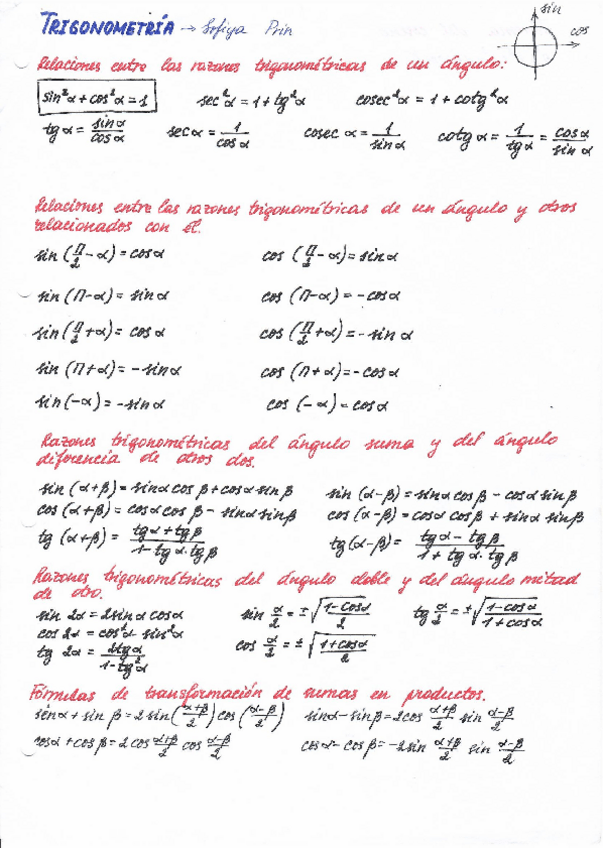 TRIGONOMETRÍA → Sofiya Prin
sin
cos
Relaciones entre las razones trigonométricas de un ángulo:
sin²α + cos²α = 1 sec²α = 1 + tg²α cosec²α = 1 + cotg²α
tg α = sin α / cos α sec α = 1 / cos α cosec α = 1 / sin α cotg α = 1 / tg α = cos α / sin α
Relaciones entre las razones trigonométricas de un ángulo y otros
relacionados con él.
sin (Π/2 - α) = cos α cos (Π/2 - α) = sin α
sin (Π - α) = sin α cos (Π - α) = - cos α
sin (Π/2 + α) = cos α cos (Π/2 + α) = - sin α
sin (Π + α) = - sin α cos (Π + α) = - cos α
sin (-α) = - sin α cos (-α) = cos α
Razones trigonométricas del ángulo suma y del ángulo
diferencia de otros dos.
sin (α+β) = sin α cos β + cos α sin β sin (α-β) = sin α cos β - cos α sin β
cos (α+β) = cos α cos β - sin α sin β cos (α-β) = cos α cos β + sin α sin β
tg (α+β) = tg α + tg β / 1 - tg α · tg β tg (α-β) = tg α - tg β / 1 + tg α · tg β
Razones trigonométricas del ángulo doble y del ángulo mitad
de otro.
sin 2α = 2 sin α cos α sin α/2 = ± √(1 - cos α / 2) tg α/2 = ± √(1 - cos α / 1 + cos α)
cos 2α = cos²α - sin²α cos α/2 = ± √(1 + cos α / 2)
tg 2α = 2tg α / 1 - tg²α
Fórmulas de transformación de sumas en productos.
sen α + sin β = 2 sin (α+β / 2) cos (α-β / 2) sin α - sin β = 2 cos α+β / 2 sin α-β / 2
cos α + cos β = 2 cos α+β / 2 cos α-β / 2 cos α - cos β = -2 sin α+β / 2 sin α-β / 2